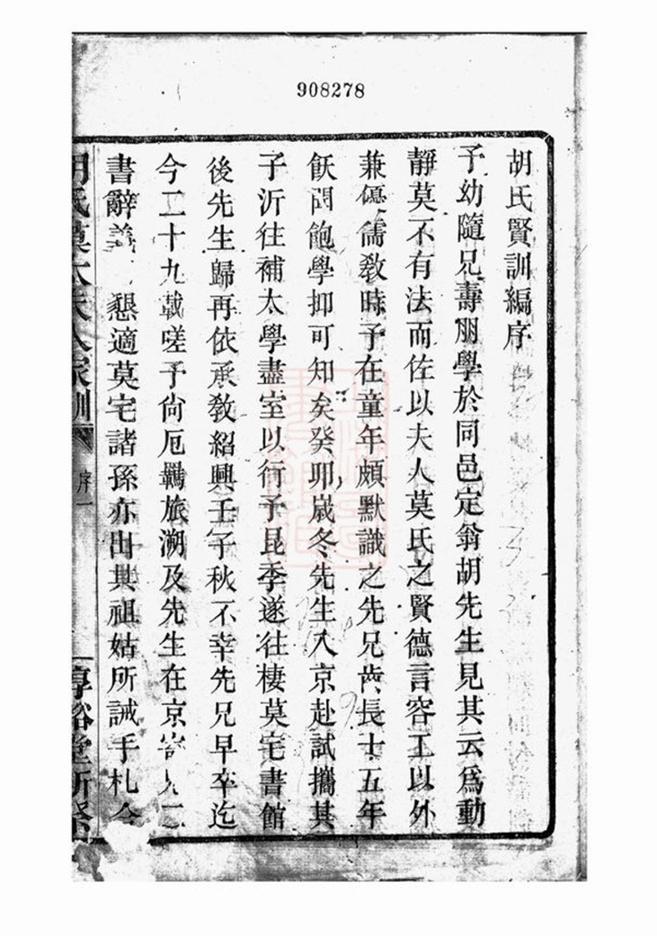 908278
胡氏賢訓編序
予幼隨兄壽朋學於同邑定翁胡先生見其云為動
靜莫不有法而佐以夫人莫氏之賢德言容工以外
兼優儒教時予在童年頗默識之先兄齒長十五年
飫聞飽學抑可知矣癸卯歲冬先生入京赴試攜其
子沂往補太學盡室以行予昆季遂往棲莫宅書館
後先生歸再依承教紹興壬子秋不幸先兄早卒迄
今二十九載嗟予尙厄羈旅溯及先生在京寄兄二
書辭義懇適莫宅諸孫亦出其祖姑所誡手札令
胡氏莫太夫人家訓
序一
惇裕堂